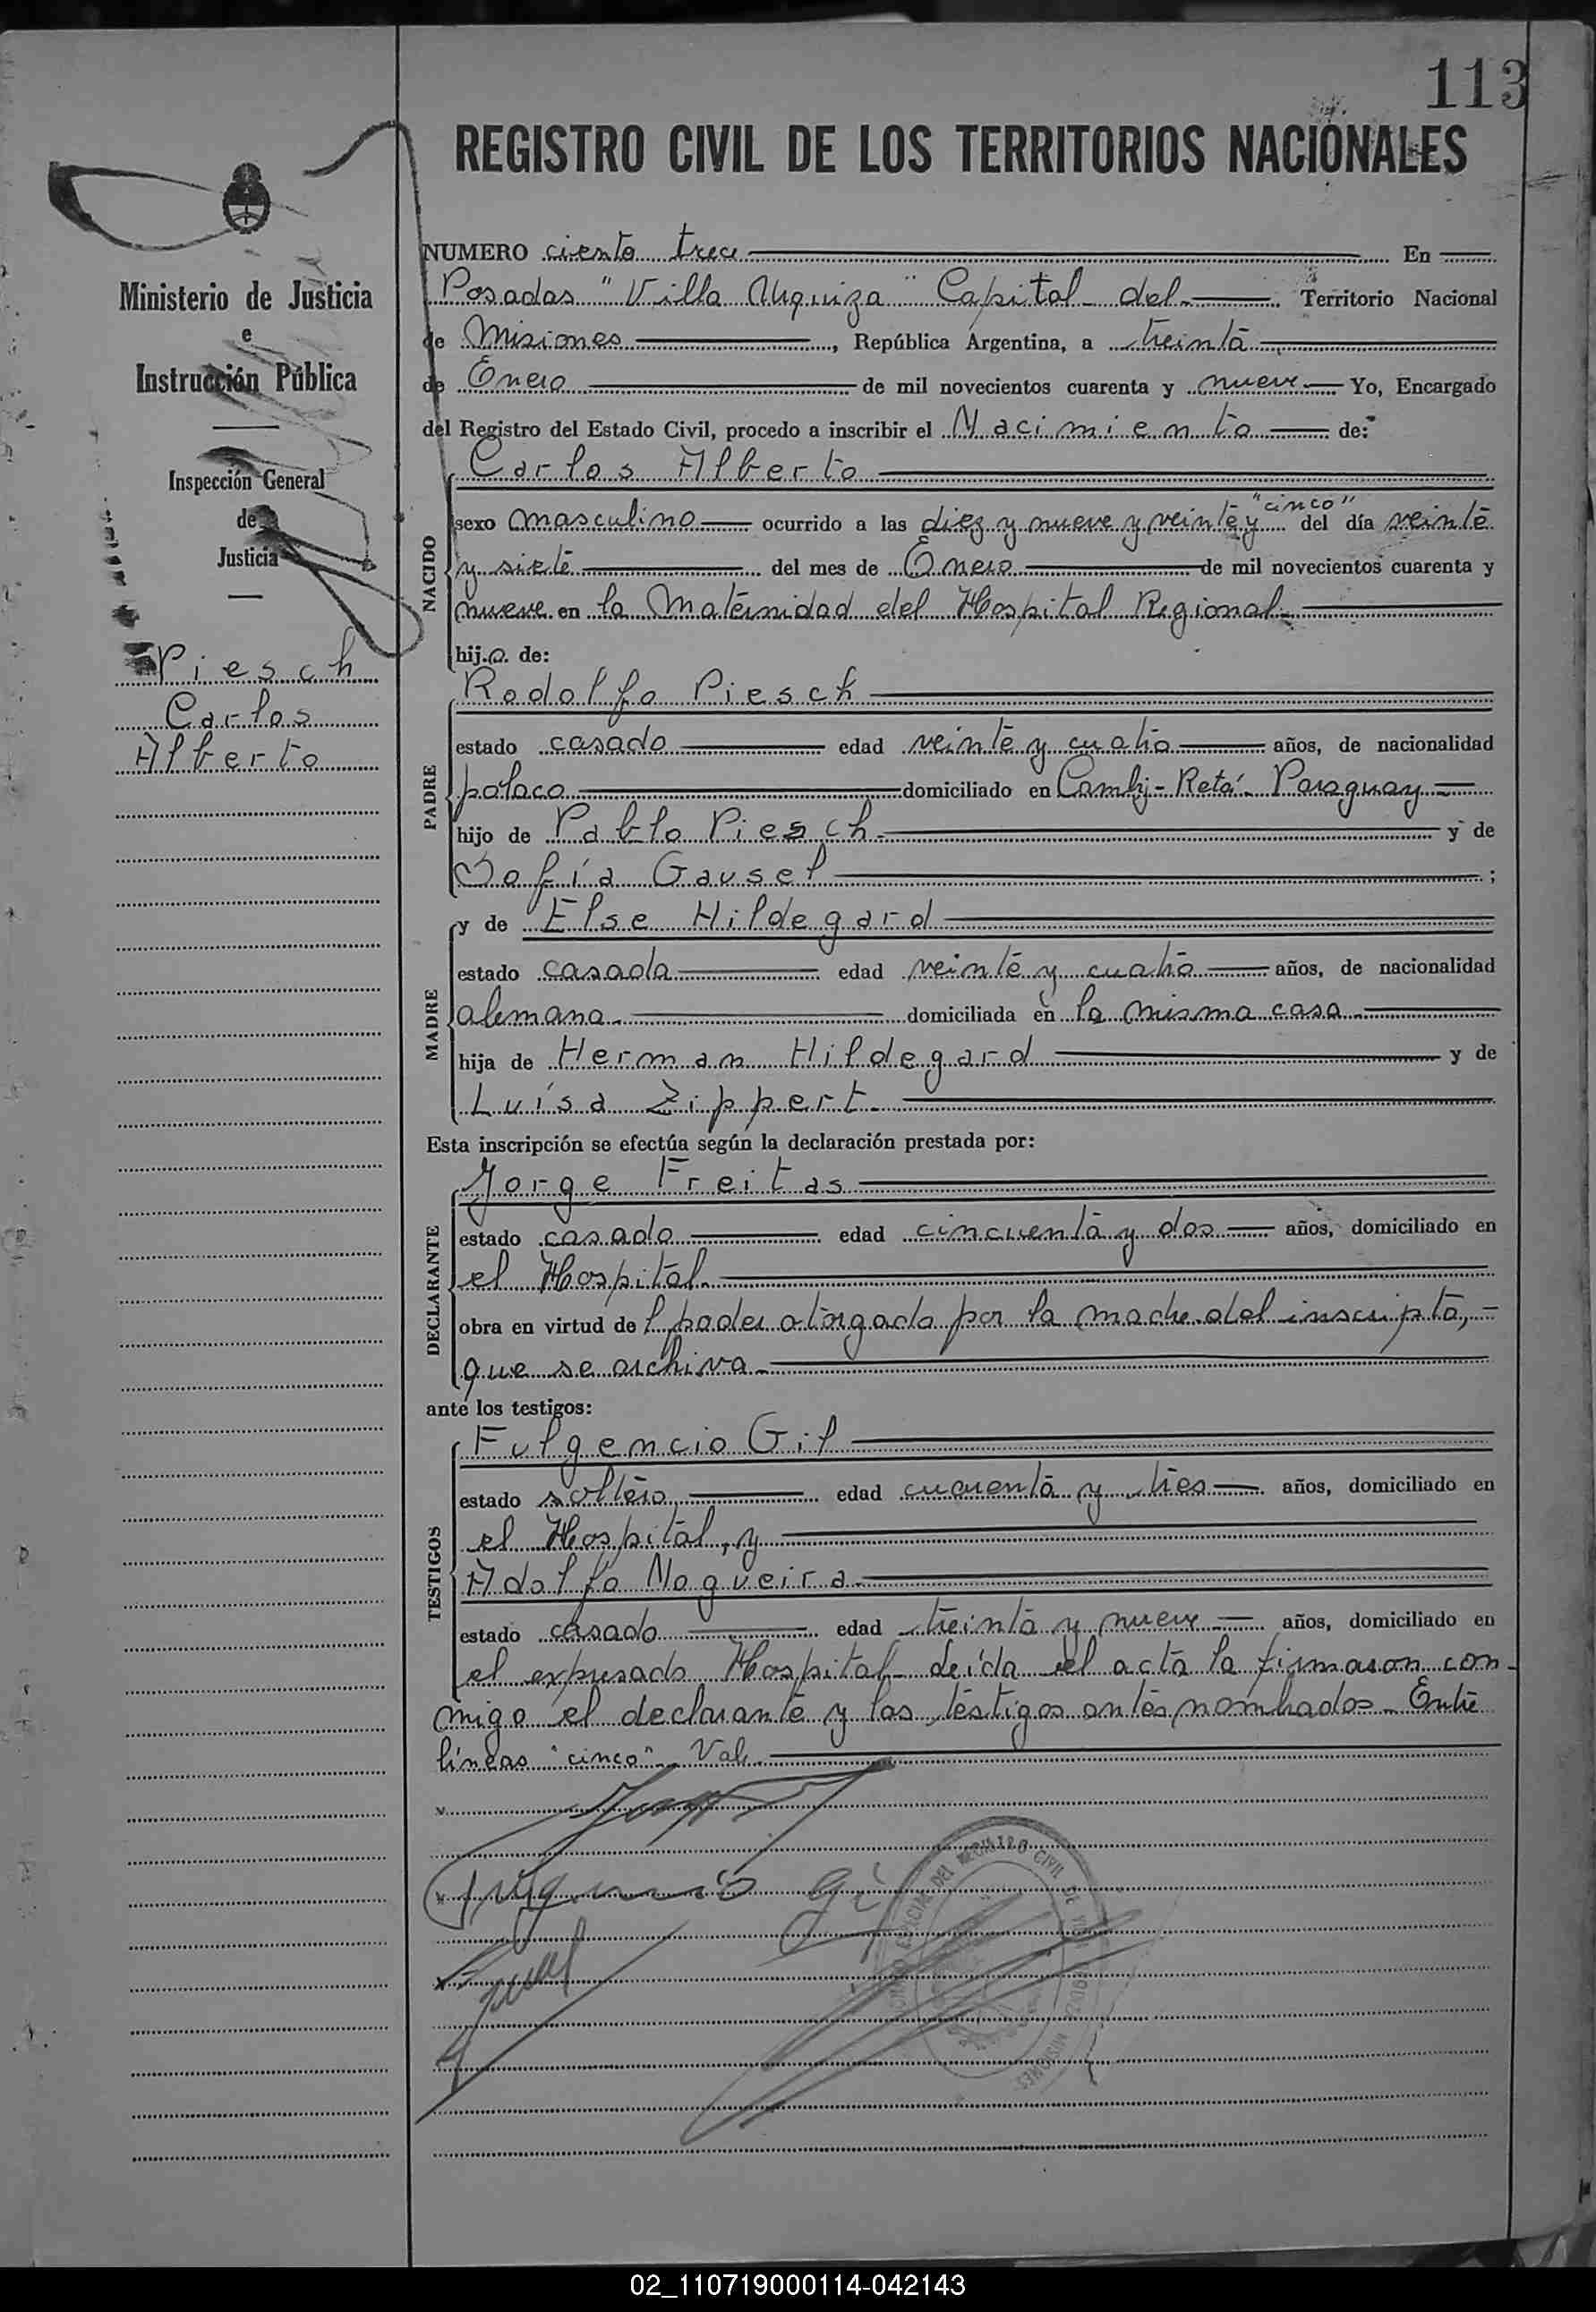 113
REGISTRO CIVIL DE LOS TERRITORIOS NACIONALES
Ministerio de Justicia
e
Instrucción Pública
Inspección General
de
Justicia
Piesch
Carlos
Alberto
NUMERO ciento trece En
Posadas "Villa Urquiza" Capital del Territorio Nacional
de Misiones, República Argentina, a treinta
de Enero de mil novecientos cuarenta y nueve Yo, Encargado
del Registro del Estado Civil, procedo a inscribir el Nacimiento de:
NACIDO
Carlos Alberto
sexo masculino ocurrido a las diez y nueve y veinte y "cinco" del día veinte
y siete del mes de Enero de mil novecientos cuarenta y
nueve en la Maternidad del Hospital Regional
hijo de:
PADRE
Rodolfo Piesch
estado casado edad veinte y cuatro años, de nacionalidad
polaco domiciliado en Camby-Retá- Paraguay
hijo de Pablo Piesch y de
Sofía Gausel ;
MADRE
y de Else Hildegard
estado casada edad veinte y cuatro años, de nacionalidad
alemana domiciliada en la misma casa
hija de Herman Hildegard y de
Luísa Zippert
Esta inscripción se efectúa según la declaración prestada por:
DECLARANTE
Jorge Freitas
estado casado edad cincuenta y dos años, domiciliado en
el Hospital
obra en virtud del poder otorgado por la madre del inscripto,
que se archiva
ante los testigos:
TESTIGOS
Fulgencio Gil
estado soltero edad cuarenta y tres años, domiciliado en
el Hospital, y
Adolfo Nogueira
estado casado edad treinta y nueve años, domiciliado en
el expresado Hospital- Leída el acta la firmaron con-
migo el declarante y los testigos antes nombrados- Entre
líneas "cinco" Vale
Fulgencio Gil
DEL REGISTRO CIVIL DE
MISIONES
02_110719000114-042143